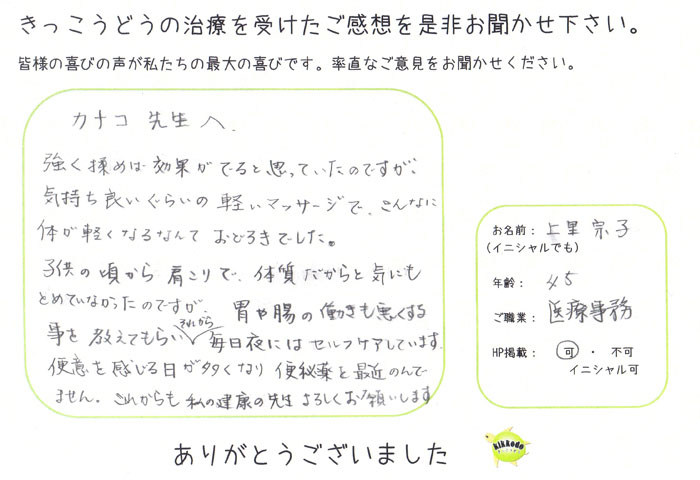 きっこうどうの治療を受けたご感想を是非お聞かせ下さい。
皆様の喜びの声が私たちの最大の喜びです。率直なご意見をお聞かせください。
カナコ 先生へ
強く揉めば効果がでると思っていたのですが、
気持ち良いぐらいの軽いマッサージで、こんなに
体が軽くなるなんておどろきでした。
子供の頃から肩こりで、体質だからと気にも
とめていなかったのですが、胃や腸の働きも悪くする
事を教えてもらいそれから毎日夜にはセルフケアしています。
便意を感じる日が多くなり便秘薬を最近のんで
ません。これからも私の健康の先生よろしくお願いします
お名前:上里宗子
(イニシャルでも)
年齢:45
ご職業:医療事務
HP掲載:可・不可
イニシャル可
ありがとうございました
kikkodo